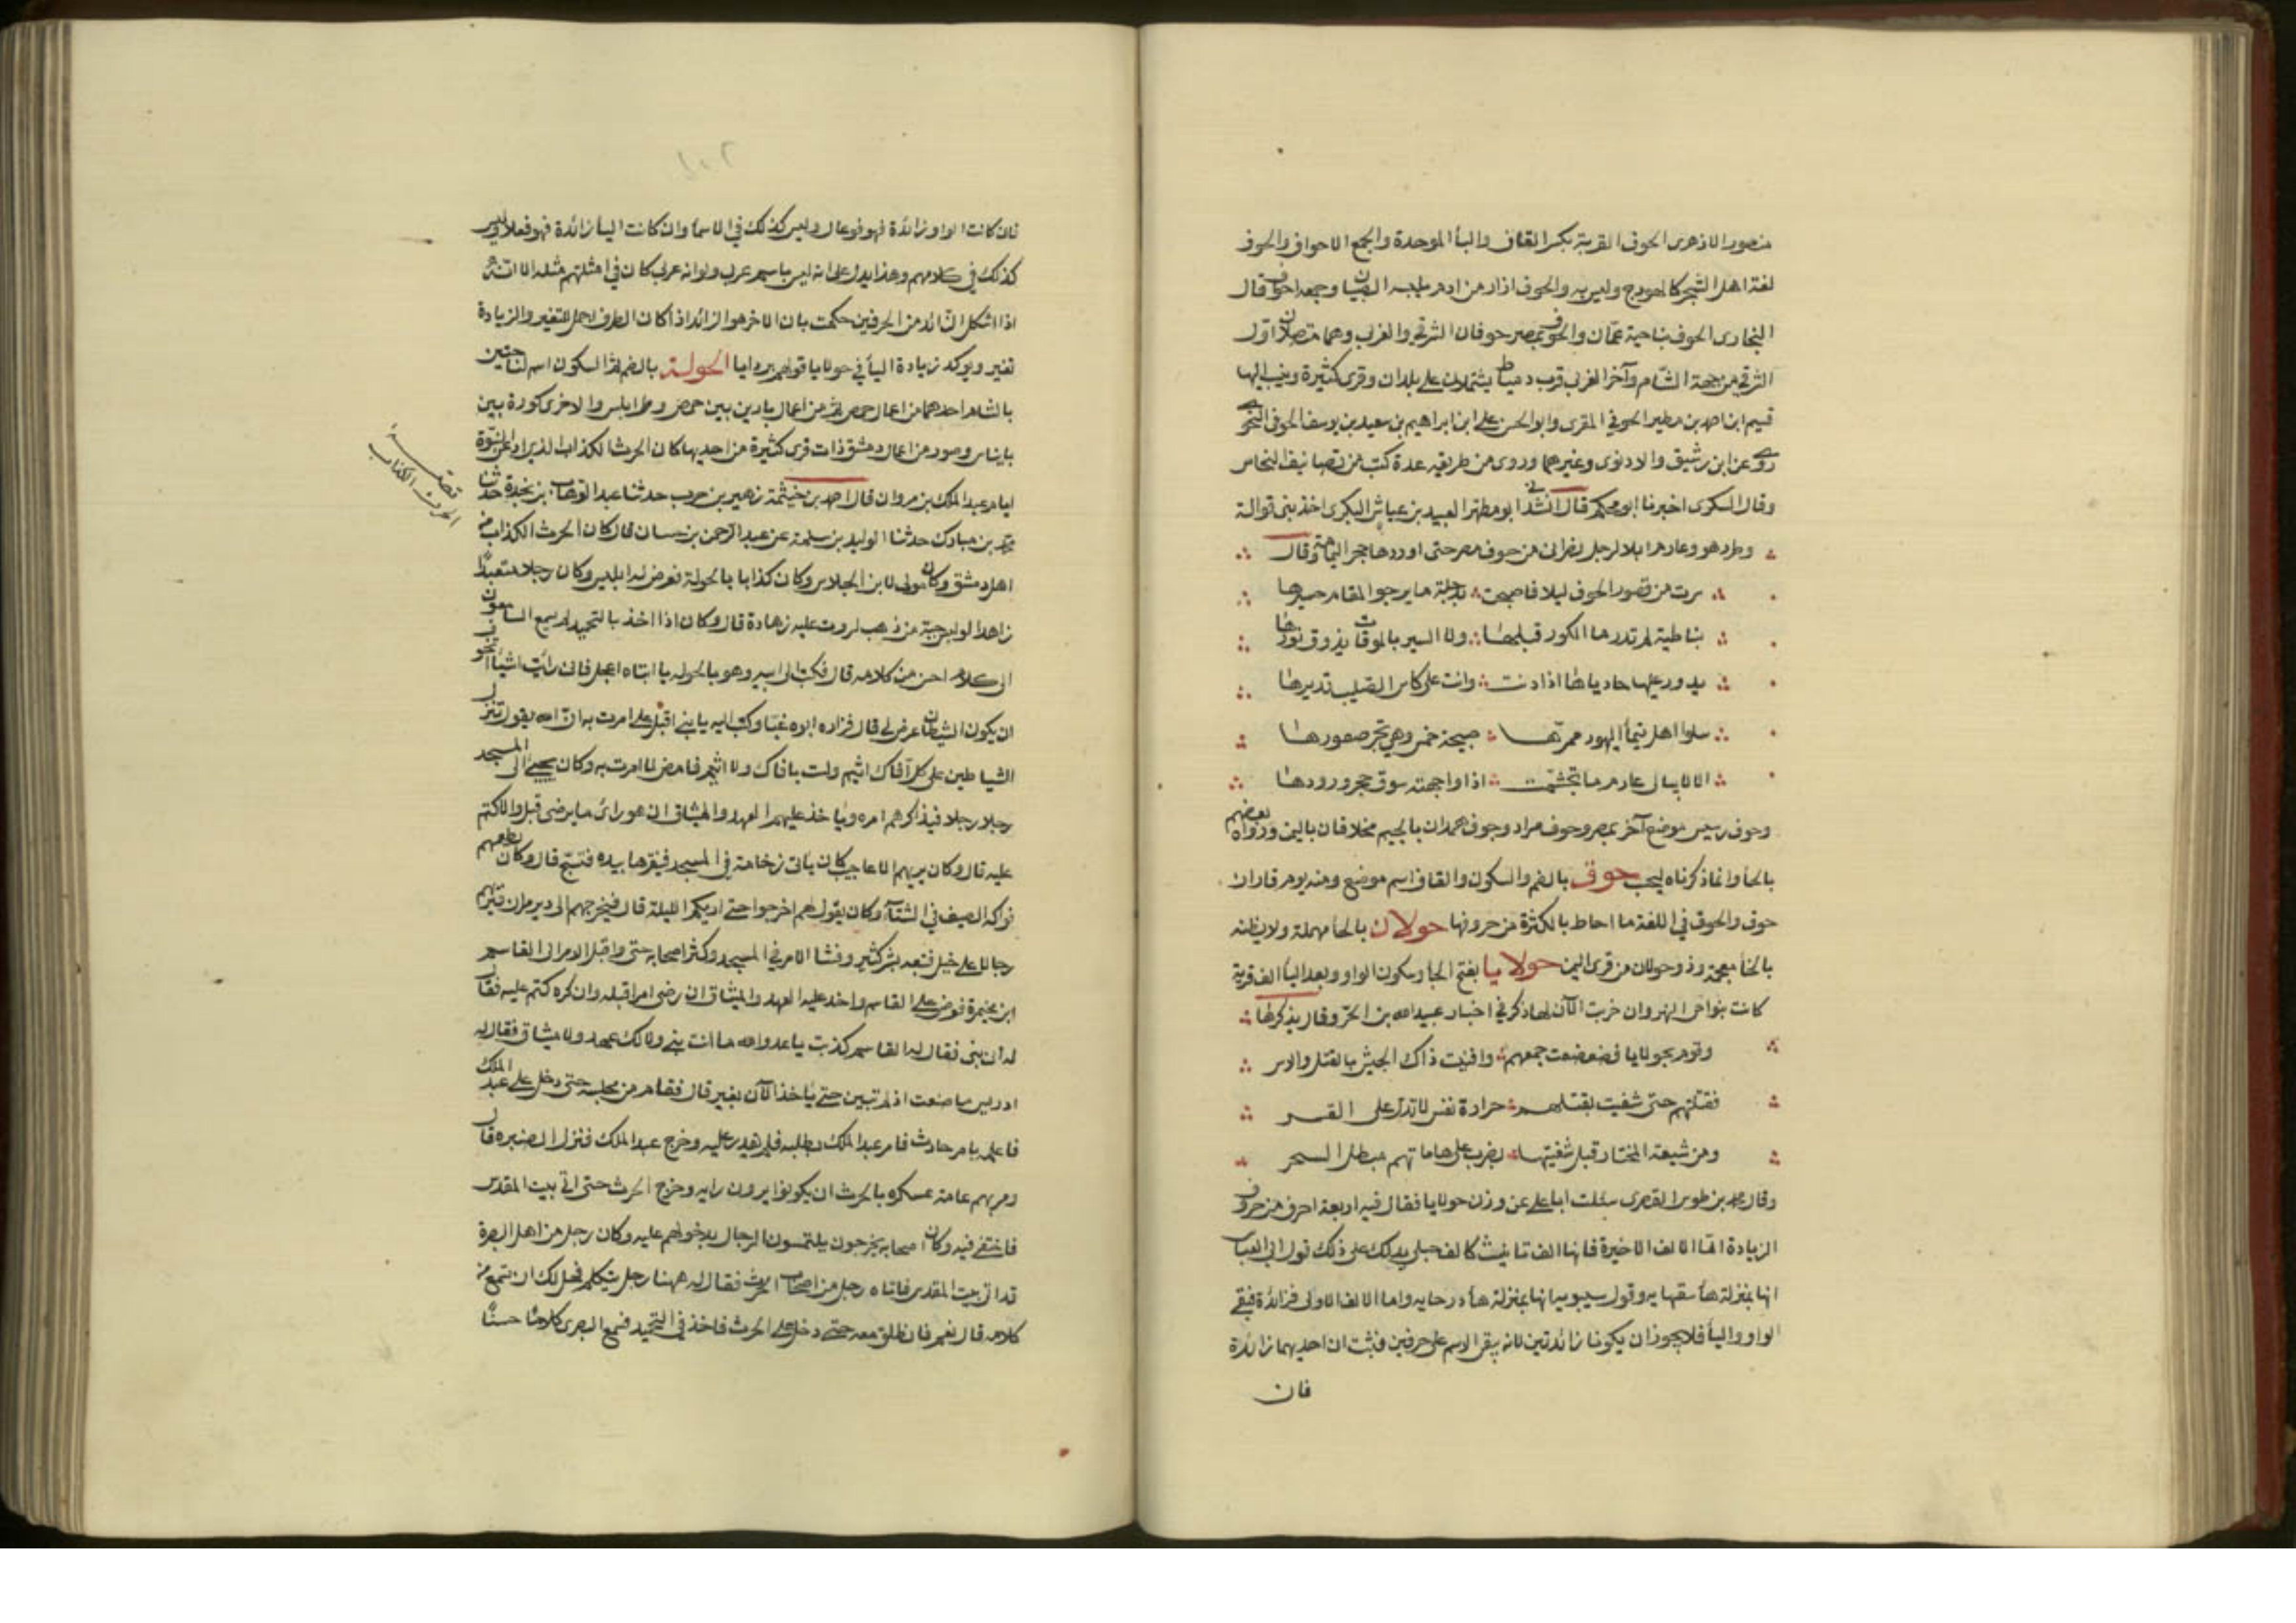 منصور الازهرى الحوف القربة بكسر القاف والبا الموحدة والجمع الاحواف والحوف
لغة اهل الشحر كالهودج وليس به والحوف ازار من ادم يلبسه الصبيان وجمعه احواف قال
البخارى الحوف بناحية عمّان والحوف بمصر حوفان الشرقى والغربى وهما متصلان اوّل
الشرقى من جهة الشام وآخر الغربى قرب دمياط يشتملان على بلدان وقرى كثيرة وينسب اليها
قسيم ابن احمد بن مطير الحوفي المقرى وابو الحسن على ابن ابراهيم بن سعيد بن يوسف الحوفى النحوى
روى عن ابن رشيق والادفوى وغيرهما وروى من طريقه عدة كتب من تصانيف النحاس
وقال السكرى اخبرنا ابو محكم قال انشدنى ابو مطهر العبيد بن عياش البكرى اخذ بنى قوالة
وطرد هو وعارم ابلا لرجل نصرانى من حوف مصر حتى اوردها حجر اليمامة وقال
سرت من قصور الحوف ليلا فاصبحت بدجلة ما يرجوا المقام حسيرها
نباطية لم تدر ما الكور قبلها ولا السير بالموقات يذوق نورها
يدور عليها حادياها اذا دنت وانت على كاس الصليب تديرها
سلوا اهل تيما اليهود ممرّها صبيحة خمس وهى تجر صعورها
الا لا يبال عارم ما تجشمت اذا واجهته سوق حجر ودورها
وحوف رميس موضع آخر بمصر وحوف مراد وجوف همدان بالجيم مخلافان باليمن ورواه بعضهم
بالحا وانما ذكرناه ليجتنب حوق بالضم والسكون والقاف اسم موضع ومنه يوم قاران
حوق والحوق في اللغة ما احاط بالكثرة من حروفها حولان بالحا مهملة ولا يظنه
بالخا معجمة وذو حولان من قرى اليمن حولايا بفتح الحا وسكون الواو وبعد اليا الف قرية
كانت بنواحى النهروان خربت الآن لها ذكر في اخبار عبيد الله بن الحرّ وقال يذكرها
ويوم بحولايا فضعضعت جمعهم وافنيت ذاك الجيش بالقتل والاسر
فقتلتهم حتى شفيت بقتلهم حرارة نفس لا تذل على القسر
ومن شيعة المختار قبل شفيتها بضرب على هاماتهم مبطل السحر
وقال محمد بن طوس القصرى سئلت ابا على عن وزن حولايا فقال فيه اربعة احرف من حروف
الزيادة امّا الالف الاخيرة فانها الف تانيث كالف حبلى يدلك على ذلك قول ابى العباس
انها بمنزلة ها سقهايه وقول سيبويه انها بمنزلة ها درحايه واما الالف الاولى فزائدة فيبقى
الواو واليا فلا يجوز ان يكونا زائدتين لانه يبقى الاسم على حرفين فثبت ان احديهما زائدة
فان
فان كانت الواو زائدة فهو فوعال وليس كذلك في الاسما وان كانت اليا زائدة فهو فعلايا وليس
كذلك في كلامهم وهذا يدل على انه ليس باسم عربى ولو انه عربى كان في امثلتهم مثله الا انه
اذا اشكل الزائد من الحرفين حكمت بان الاخر هو الزائد اذ اكان الطرف احمل للتغير والزيادة
تغير ويوكد زيادة اليا في حولايا قولهم بردايا الحولة بالضم لذا السكون اسم لناحيتين
بالشام احدهما من اعمال حمص ثم من اعمال بارين بين حمص وطرابلس والاخرى كورة بين
بانياس وصور من اعمال دمشق ذات قرى كثيرة من احديها كان الحرث الكذاب الذى ادعى النبوّة
ايام عبد الملك بن مروان قال احمد بن خيثمة زهير بن حرب حدثنا عبد الوهاب بن نجدة حدثنا
محمد بن مبارك حدثنا الوليد بن سلمة عن عبد الرحمن بن حسان قال كان الحرث الكذاب من
اهل دمشق وكان مولى لابن الجلاس وكان كذابا بالحولة فعرض له ابليس وكان رجلا متعبدا
زاهدا لو لبس جبة من ذهب لروت عليه زهادة قال وكان اذا اخذ بالتحميد لم يسمع السامعون
الى كلام احسن من كلامه قال فكتب الى ابيه وهو بالحوله يا ابتاه اعجل فانى رائت اشياً اتخوف
ان يكون الشيطان عرض لى قال فزاده ابوه غبّا وكتب اليه يا بنى اقبل على امرت به انّ الله يقول تنزل
الشياطين على كل آفاك اثيم ولست بافاك ولا اثيم فامض لما امرت به وكان يجئ الى المسجد
رجلا رجلا فيذاكرهم امره ويأخذ عليهم العهد والميثاق ان هو رائ ما يرضى قبل والا كتم
عليه قال وكان يريهم الاعاجيب كان ياتى رخامة في المسجد فينقرها بيده فتسبّح قال وكان يطعمهم
فواكه الصيف في الشتآ وكان يقول لهم اخرجوا حتى اريكم الليلة قال فيخرجهم الى دير مران فيريهم
رجالا على خيل فتبعه بشر كثير وفشا الامر في المسجد وكثر اصحابه حتى واقبل الامر الى القاسم
ابن مخيمرة فعرض على القاسم واخذ عليه العهد والميثاق ان رضى امرا قبله وان كره كتم عليه فقال
له انى نبى فقال له القاسم كذبت يا عدو الله ما انت بنى ولا لك عهد ولا ميثاق فقال له
ادريس ما صنعت اذ لم تبين حتى ياخذ الآن يغير قال فقام من مجلسه حتى دخل على عبد الملك
فاعلمه بامر حارث فامر عبد الملك بطلبه فلم يقدر عليه وخرج عبد الملك فنزل الصنبره قال
ومريهم عامة عسكره بالحرث ان يكونوا يرون رايه وخرج الحرث حتى اتى بيت المقدس
فاختفى فيه وكان اصحابه يخرجون يلتمسون الرجال يدخلونهم عليه وكان رجل من اهل البصرة
قد اتى بيت المقدس فاتاه رجل من اصحاب الحرث فقال له ههنا رجل يتكلم فهل لك ان تسمع من
كلامه قال نعم فانطلق معه حتى دخل على الحرث فاخذ في التحميد فسمع البصرى كلامًا حسنًا
قصة
الحرث الكذاب